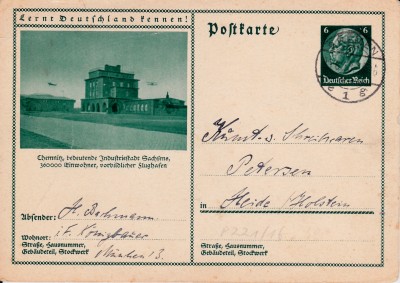 Lernt Deutschland kennen!
Postkarte
6 6
Deutsches Reich
1 g
Chemnitz, bedeutende Industriestadt Sachsens,
360000 Einwohner, vorbildlicher Flughafen
Kunst- u. Schreibwaren
Petersen
in Heide (Holstein
Absender: H. Bachmann
i. F. Königbauer
Wohnort: München 13.
Straße, Hausnummer,
Gebäudeteil, Stockwerk
Straße, Hausnummer,
Gebäudeteil, Stockwerk